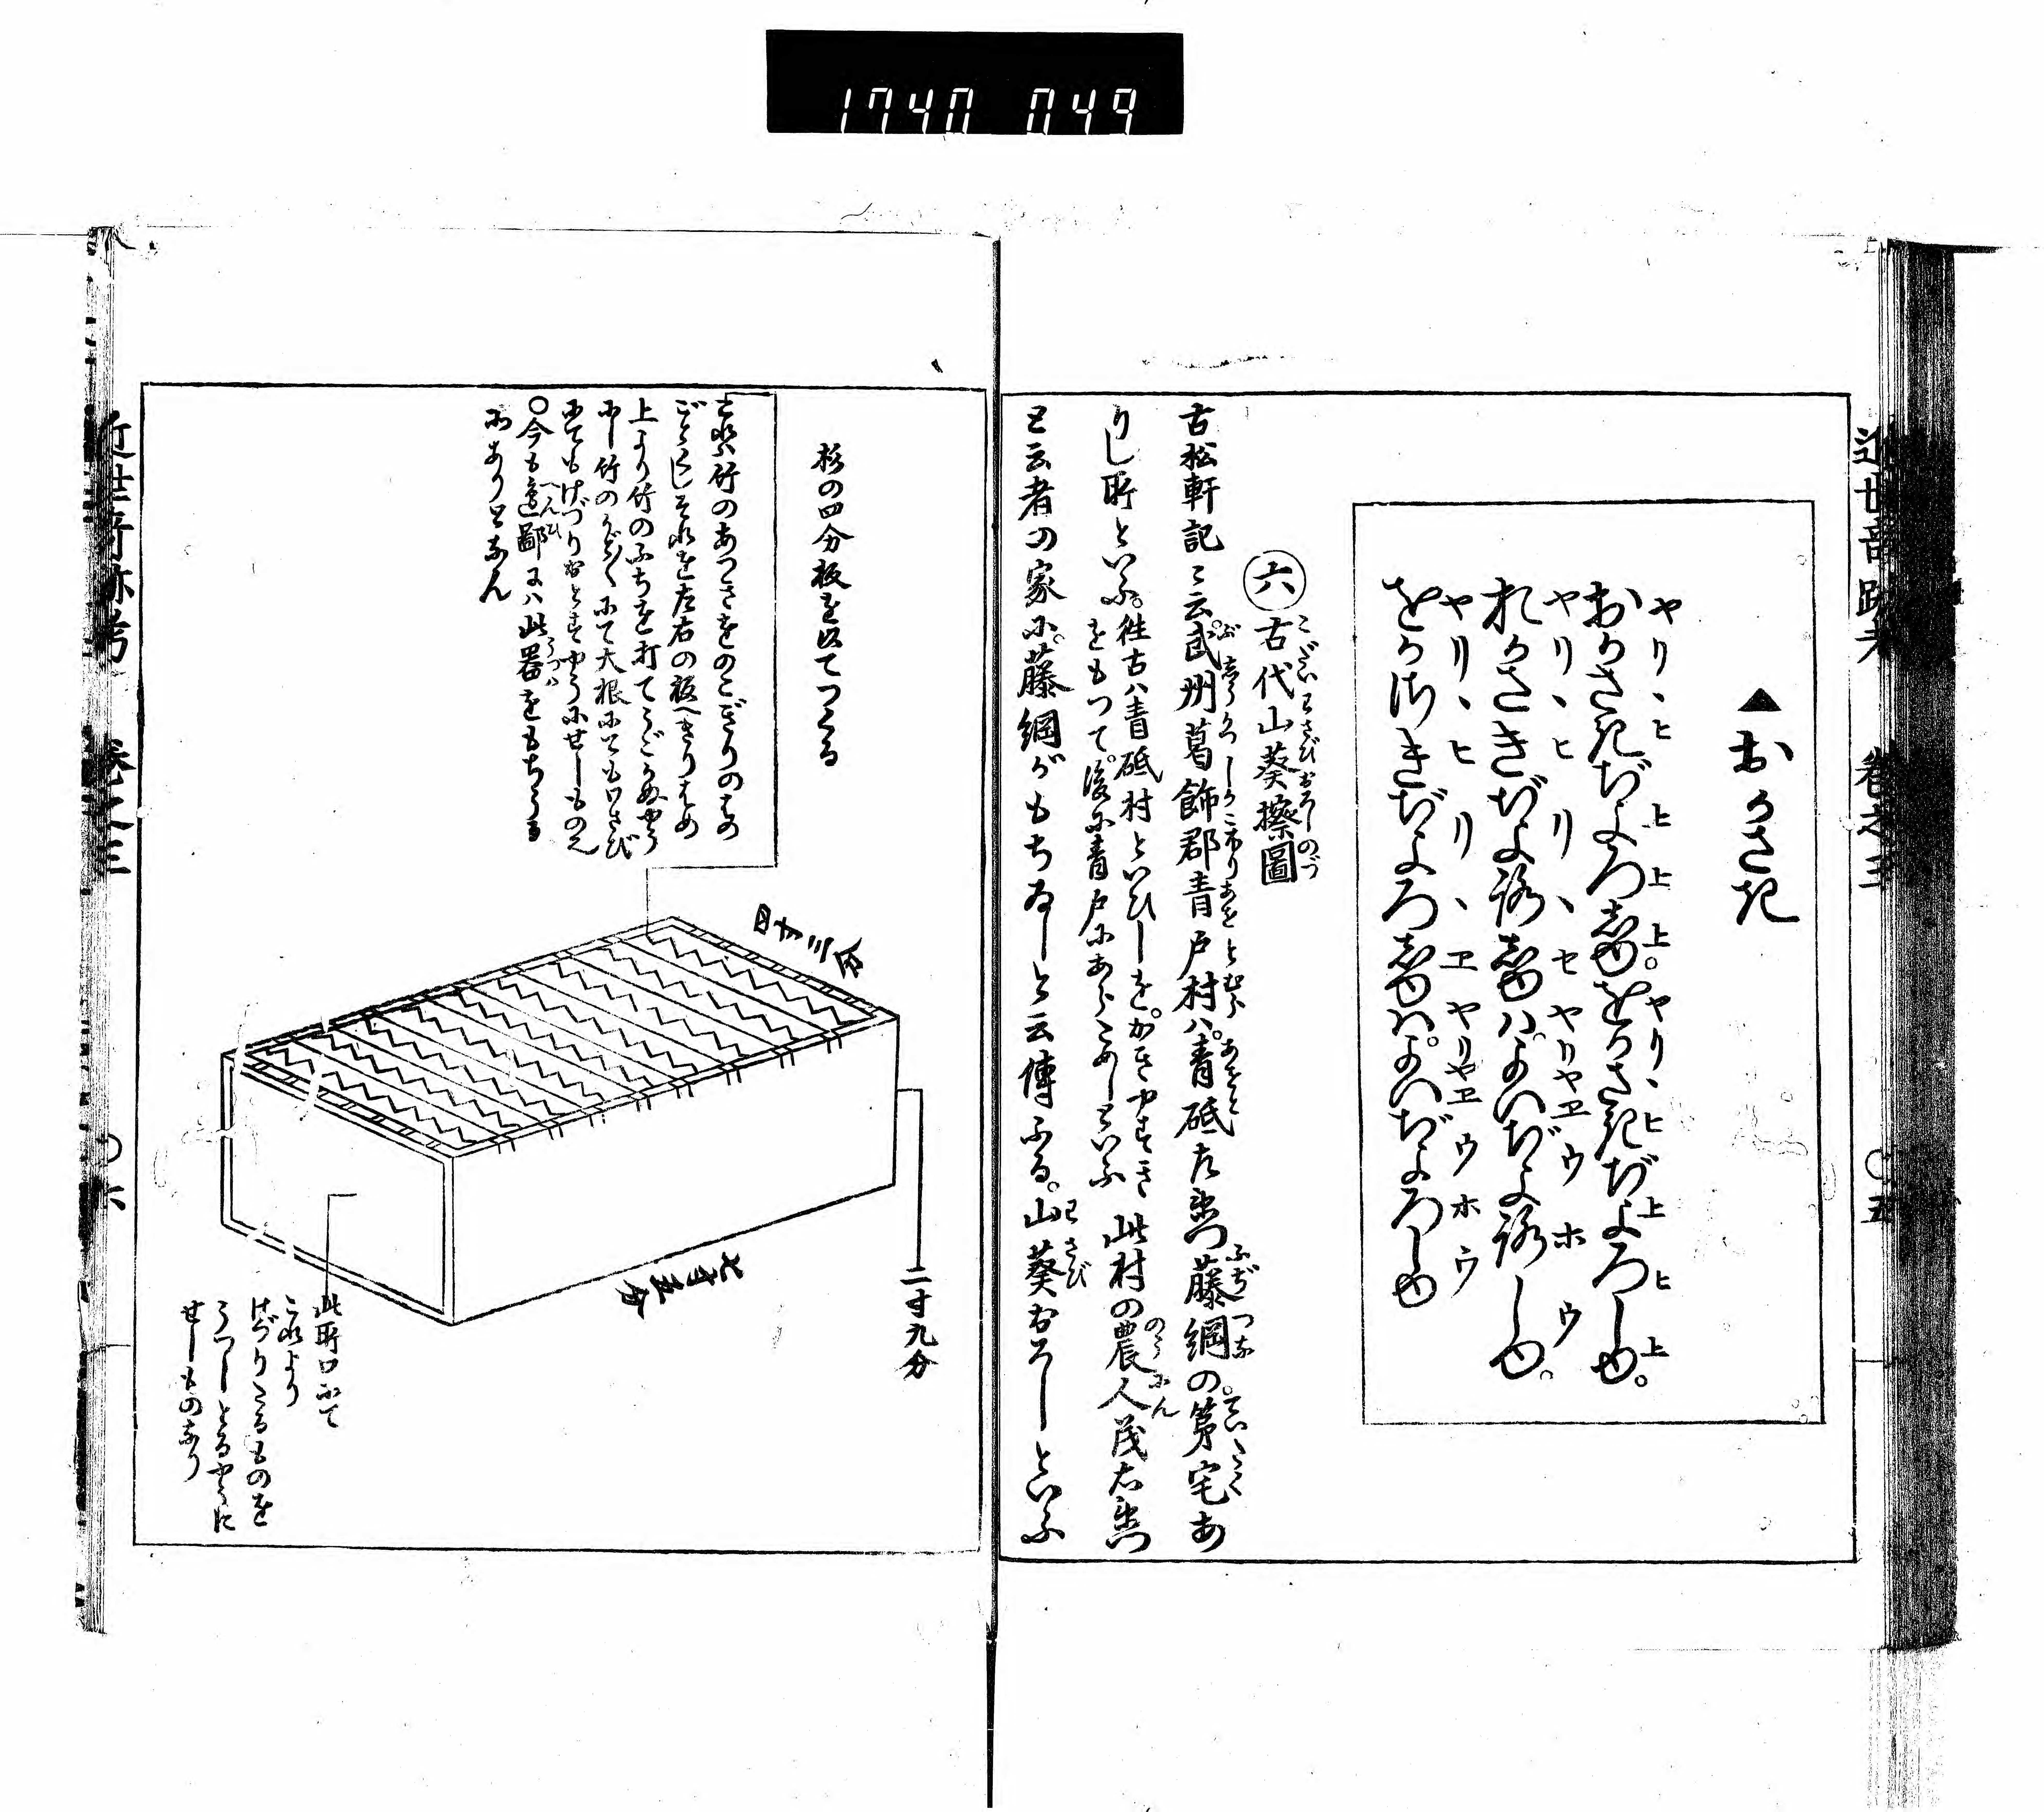 1740 049
近世奇跡考 巻之三 〇五
▲おかさき
おかさきぢよろしゆ。をかさきぢよろしゆ。
ヤリヽヒ 上上上。ヤリヽヒ上ヒ上
おかさきぢよろしゆハ。よいぢよろしゆ。
ヤリヽヒリヽセヤリヤヱウホウ
をかざきぢよろしゆハ。よいぢよろしゆ
ヤリヽヒリヽヱヤリヤヱウホウ
六 古代山葵擦圖
こだいわさびおろしのづ
古松軒記ニ云。武州葛飾郡青戸村ハ。青砥左衛門藤綱の。第宅あ
りし所といふ。
往古ハ青砥村といひしを。
をもつて。後に青戸にあらためしといふ
此村の農人茂右衛門
と云者の家に。藤綱がもちゐしと云傳ふる。山葵おろしといふ
杉の四分板を以てつくる
これハ竹のあつさをのこぎりのはの
ごとくにしそれを左右の板へきりはめ
上より竹のふちを打てうごかぬやう
にし竹のかどかどにて大根にてもわさび
にてもけづりおとすやうにせしもの也
〇今も邊鄙にハ此器をもちうる
所ありとなん
四寸三分
七寸五分
二寸九分
此所口にて
これより
けづりたるものを
うつしとるやうに
せしものなり
近世奇跡考 巻之三 〇六